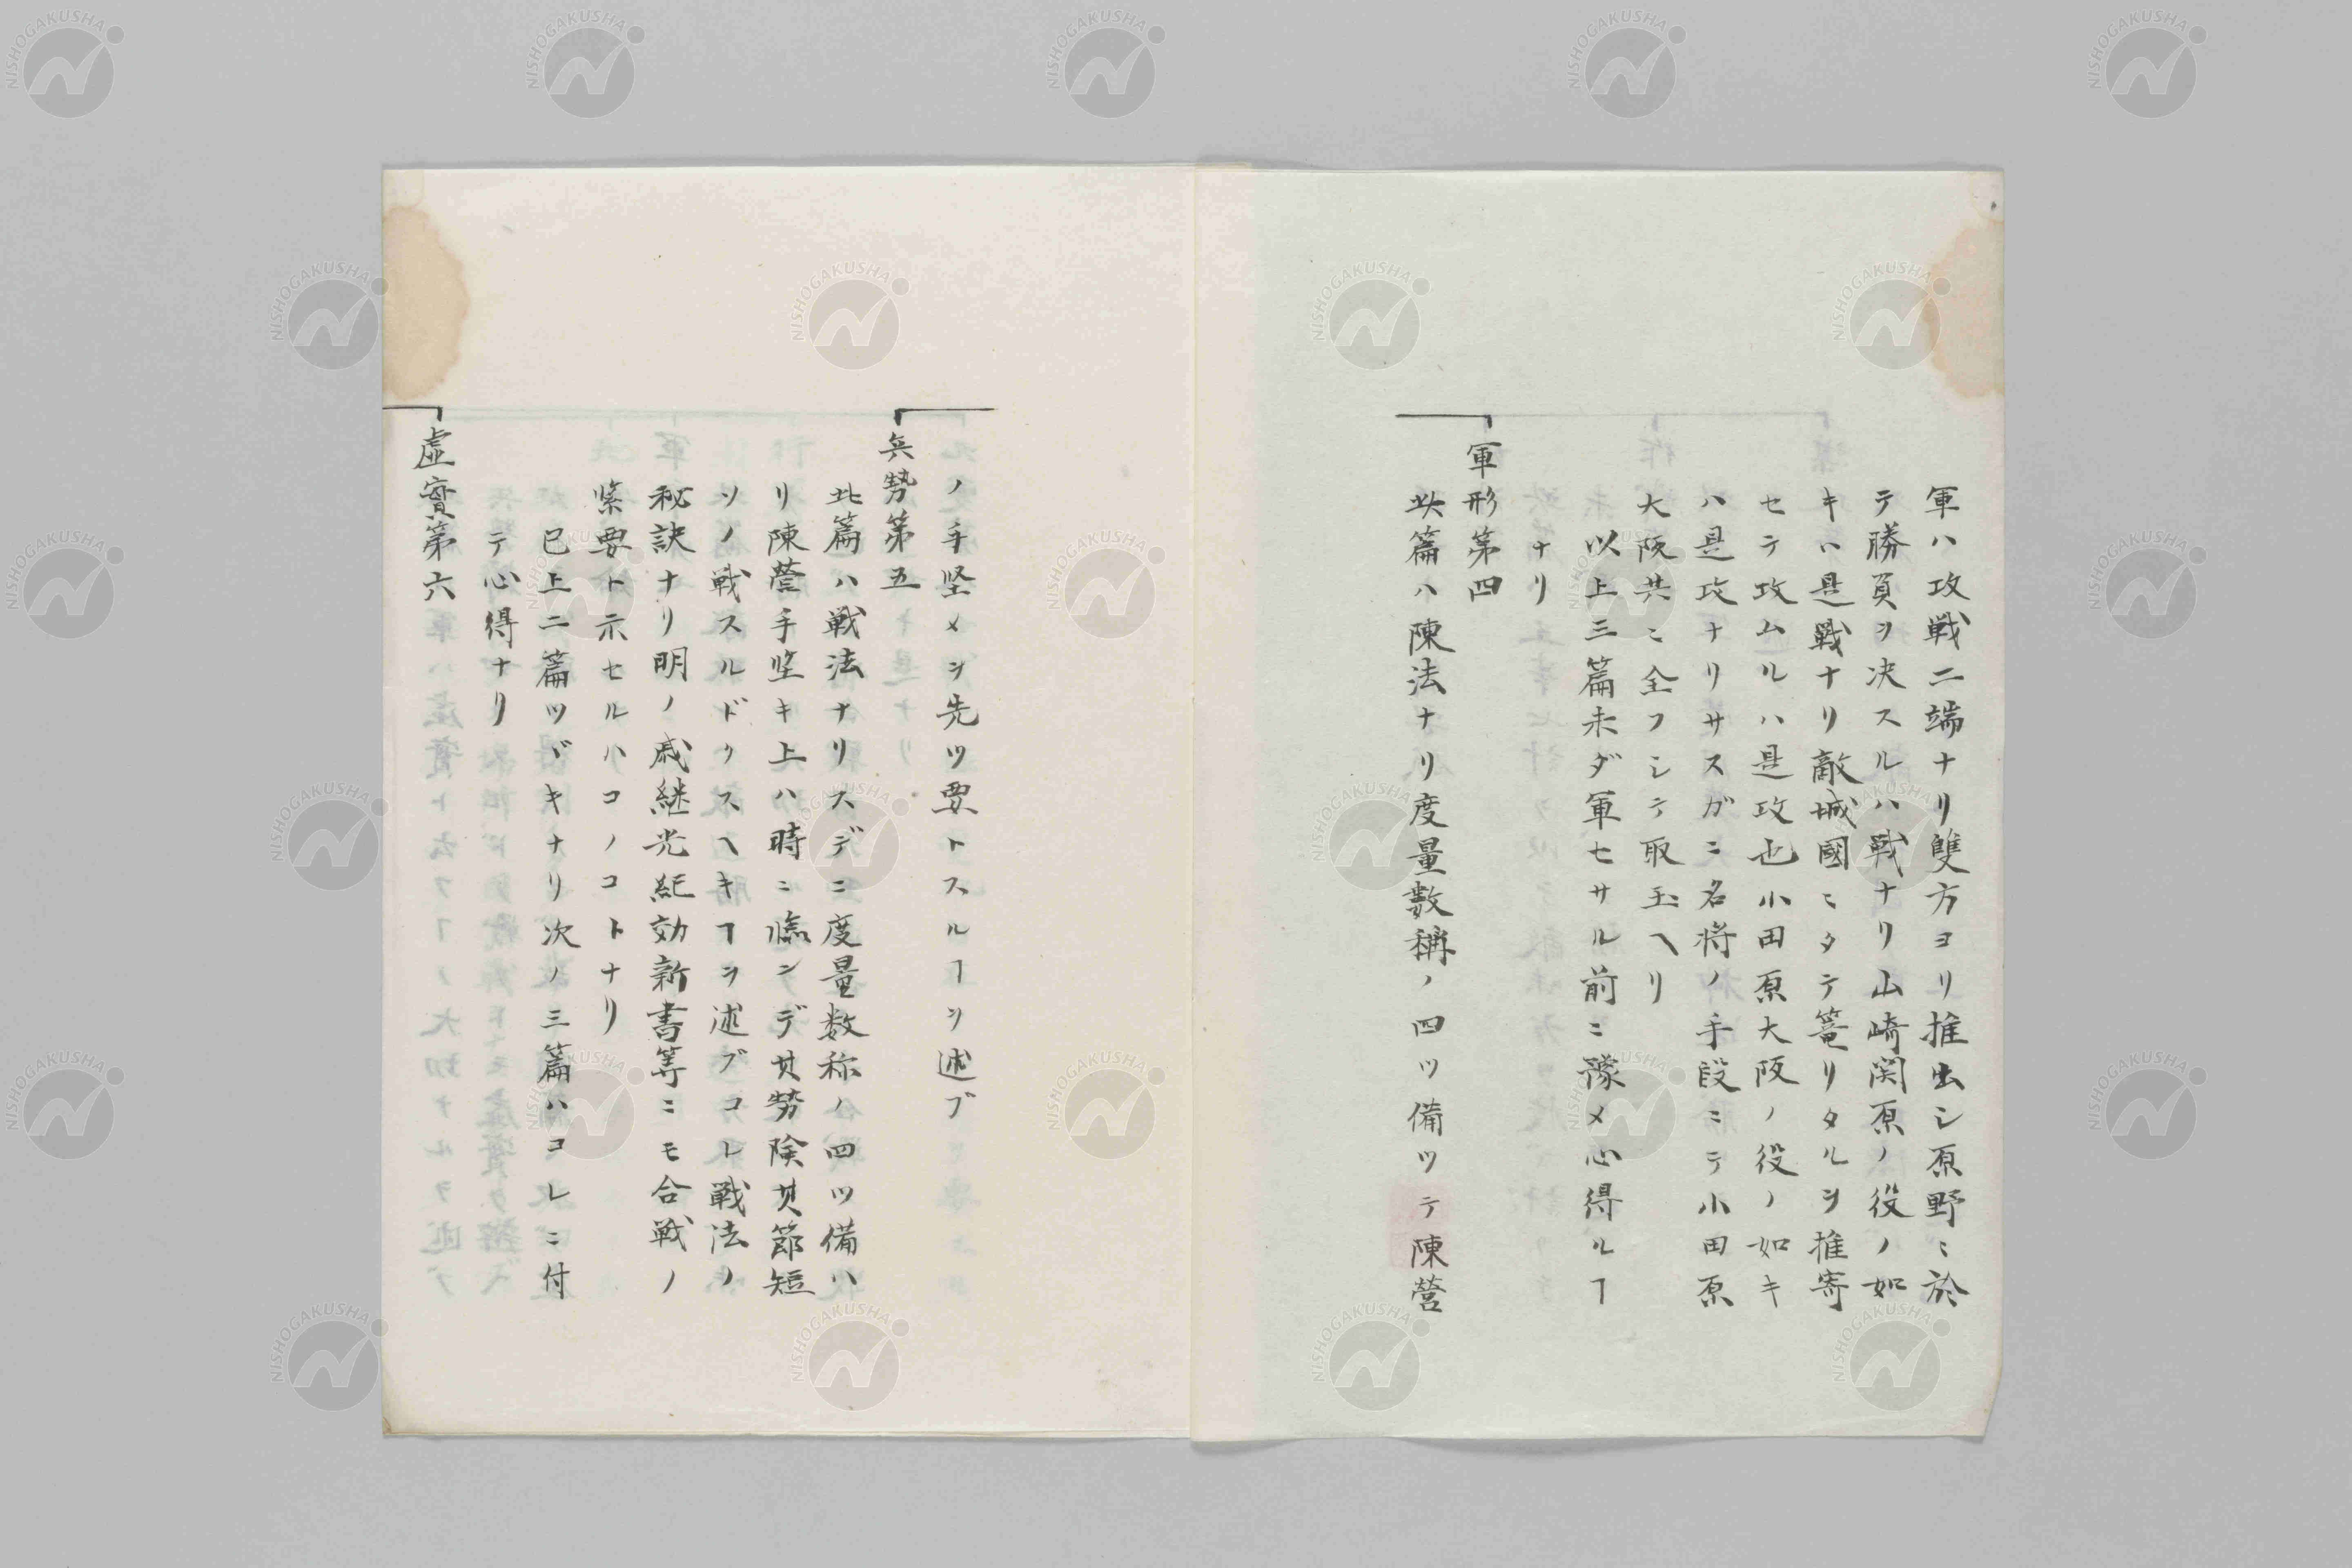 軍ハ攻戦二端ナリ雙方ヨリ推出シ原野ニ於
テ勝負ヲ决スルハ戦ナリ山崎関原ノ役ノ如
キハ是戰ナリ敵城國ニタテ篭リタルヲ推寄
セテ攻ムルハ是攻也小田原大阪ノ役ノ如キ
ハ是攻ナリサスガニ名将ノ手段ニテ小田原
大阪共ニ全フシテ取玉ヘリ
以上三篇未ダ軍セサル前ニ豫メ心得ルヿ
ナリ
軍形第四
此篇ハ陳法ナリ度量數稱ノ四ツ備ツテ陳營
ノ手堅メヲ先ツ要トスルヿヲ述ブ
兵勢第五
此篇ハ戦法ナリスデニ度量数称ノ四ツ備ハ
リ陳營手堅キ上ハ時ニ臨ンデ其勢険其節短
ソノ戦スルドクスヘキヿヲ述ブコレ戦法ノ
秘訣ナリ明ノ戚継光紀効新書等ニモ合戦ノ
緊要ト示セルハコノコトナリ
已上二篇ツヾキナリ次ノ三篇ハコレニ付
テ心得ナリ
虚實第六
NISHOGAKUSHA